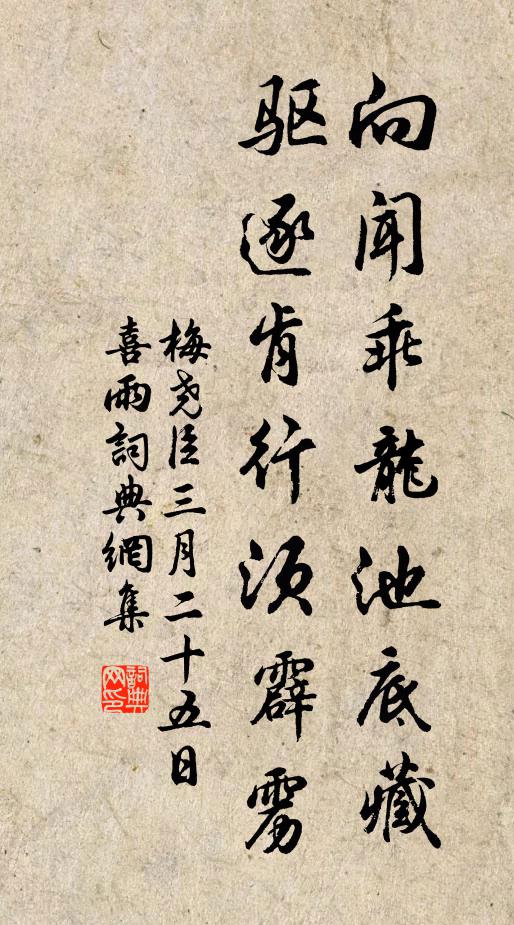 向闻乖龍池底藏
驱逐肯行须霹雳
梅尧臣三月二十五日
喜雨詞典網集
詞典网印